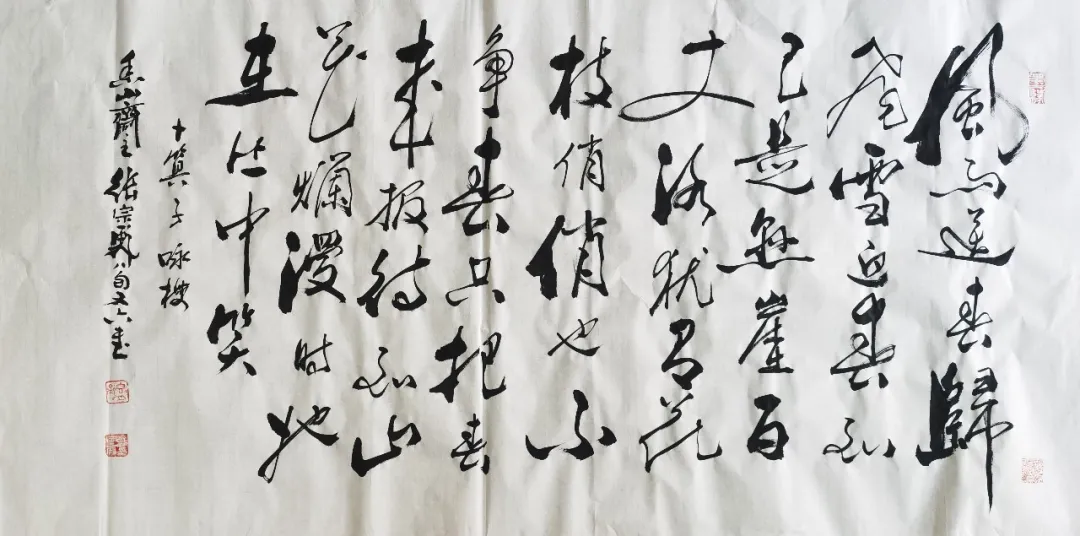 風雨送春歸
飛雪迎春到
已是懸崖百
丈冰犹有花
枝俏俏也不
争春只把春
來报待到山
花爛漫時她
在丛中笑
卜算子咏梅
香山齋主徐宗八旬又六書